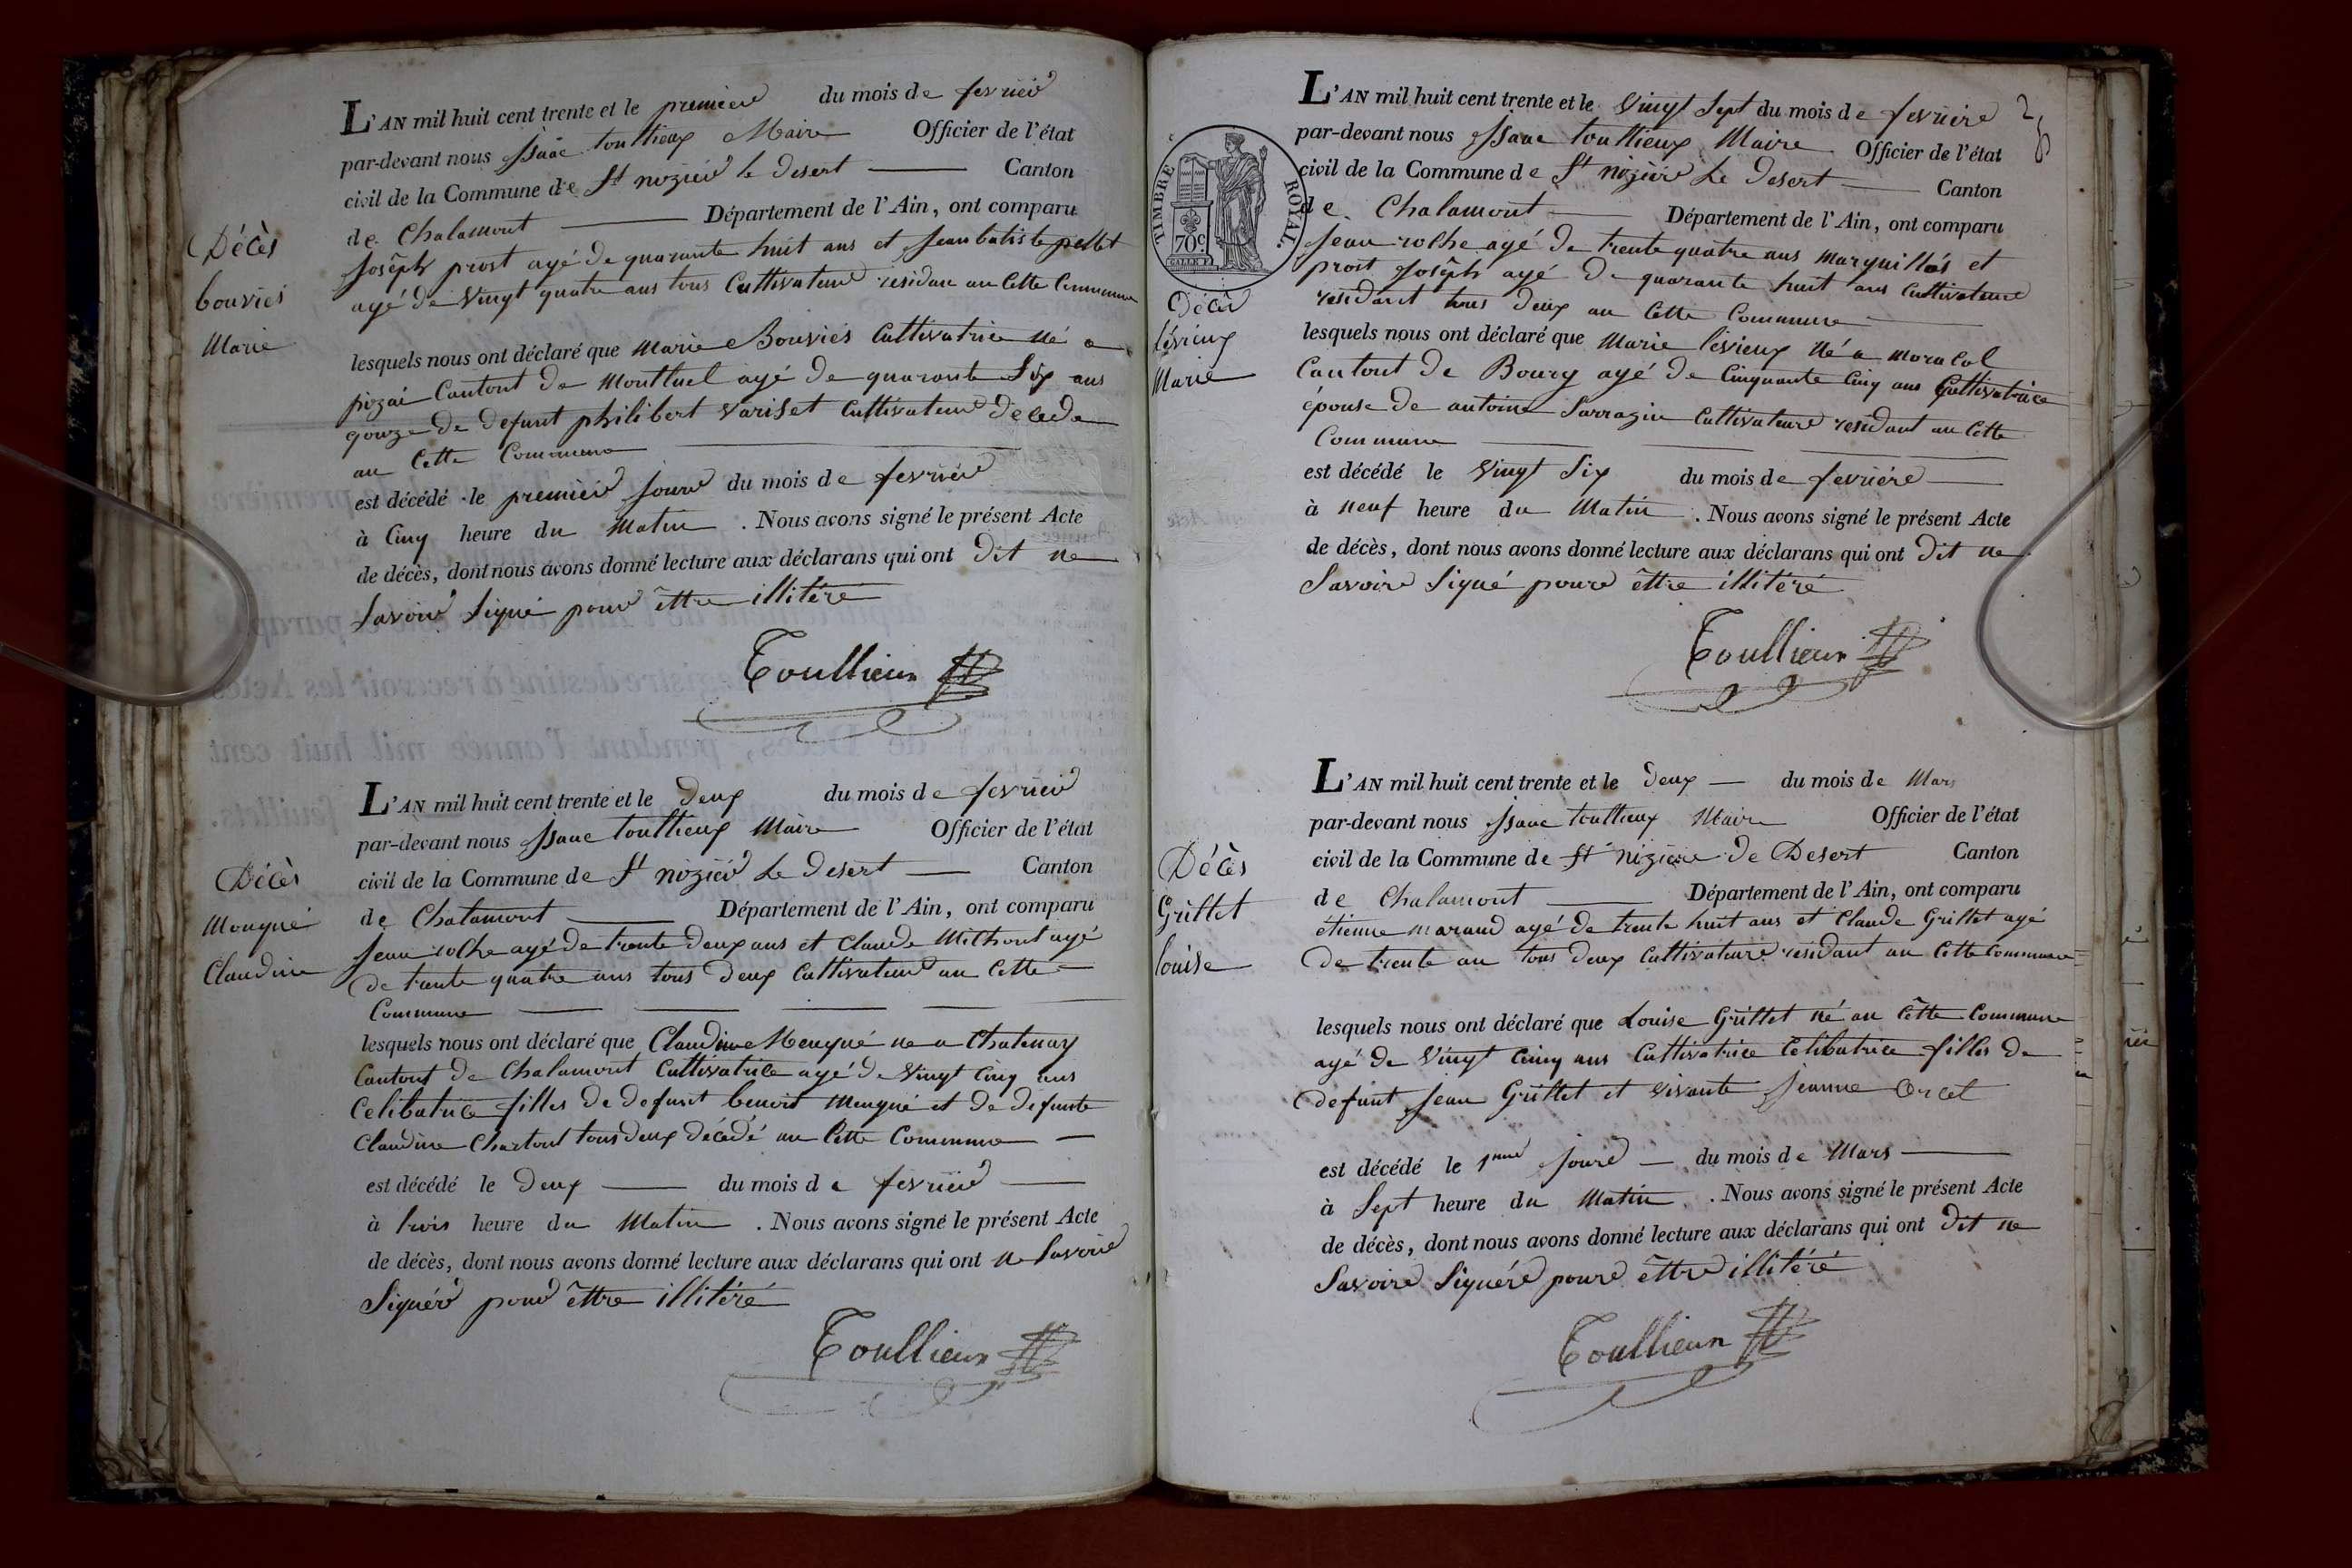 L'AN mil huit cent trente et le premiere du mois de fevrier
par-devant nous Isaac toullieux Maire Officier de l'état
civil de la Commune de St nizier le Desert Canton
de Chalamont Département de l'Ain, ont comparu
Joseph prost agé de quarante huit ans et Jean batiste pellet
agé de Vingt quatre ans tous Cultivateur residan an Cette Commune
Décès
bouvier
Marie
lesquels nous ont déclaré que Marie Bouviés Cultivatrice né a
pizai Cantont de Montluel agé de quarante Six ans
de defunt philibert Variset Cultivateur
an Cette Commune
est décédé le premier Jour du mois de fevrier
à Cinq heure du Matin . Nous avons signé le présent Acte
de décès, dont nous avons donné lecture aux déclarans qui ont Dit ne
Savoir Signé pour êttre illitéré
Toullieux
L'AN mil huit cent trente et le Deux du mois de fevrier
par-devant nous Isaac toullieux Maire Officier de l'état
civil de la Commune de St nizier Le Desert Canton
de Chalamont Département de l'Ain, ont comparu
Jean rolhe agé de trente Deux ans et Claude Milhont agé
de trente quatre ans tous Deux Cultivateur an Cette
Commune
Décès
Mengné
Claudine
lesquels nous ont déclaré que Claudine Mengné ne a Chatenay
Cantont de Chalamont Cultivatrice agé de Vingt Cinq ans
Celibatrice filles de defunt benoit Mengné et de defunte
Claudine Chartont tous deux décédé an Cette Commune
est décédé le Deux du mois de fevrier
à trois heure du Matin . Nous avons signé le présent Acte
de décès, dont nous avons donné lecture aux déclarans qui ont ne Savoir
Signér pour êttre illitéré
Toullieux
L'AN mil huit cent trente et le Vingt Sept du mois de fevriere
par-devant nous Isaac toullieux Maire Officier de l'état
civil de la Commune de St nizier Le Desert Canton
de Chalamont Département de l'Ain, ont comparu
TIMBRE ROYAL
70c
Jean rolhe agé de trente quatre ans marguillés et
prost Joseph agé de quarante huit ans Cultivateur
residant tous Deux an Cette Commune
Décès
lévieux
Marie
lesquels nous ont déclaré que Marie lévieux né a
Cantont de Bourg agé de Cinquante Cinq ans Cultivatrice
épouse de antoine Sarrazin Cultivateur residant an Cette
Commune
est décédé le Vingt Six du mois de fevriere
à neuf heure du Matin . Nous avons signé le présent Acte
de décès, dont nous avons donné lecture aux déclarans qui ont Dit ne
Savoire Signé poure êttre illitéré
Toullieux
L'AN mil huit cent trente et le Deux du mois de Mars
par-devant nous Isaac toullieux Maire Officier de l'état
civil de la Commune de St niziere de Desert Canton
de Chalamont Département de l'Ain, ont comparu
étienne maraud agé de trente huit ans et Claude Grillet agé
de trente an tous Deux Cultivateure residant an Cette Commune
Décès
Grillet
louise
lesquels nous ont déclaré que Louise Grillet né an Cette Commune
agé de Vingt Cinq ans Cultivatrice Celibatrice filles de
defunt Jean Grillet et vivante Jeanne Orcel
est décédé le Joure du mois de Mars
à Sept heure du Matin . Nous avons signé le présent Acte
de décès, dont nous avons donné lecture aux déclarans qui ont Dit ne
Savoire Signére poure êttre illitéré
Toullieux